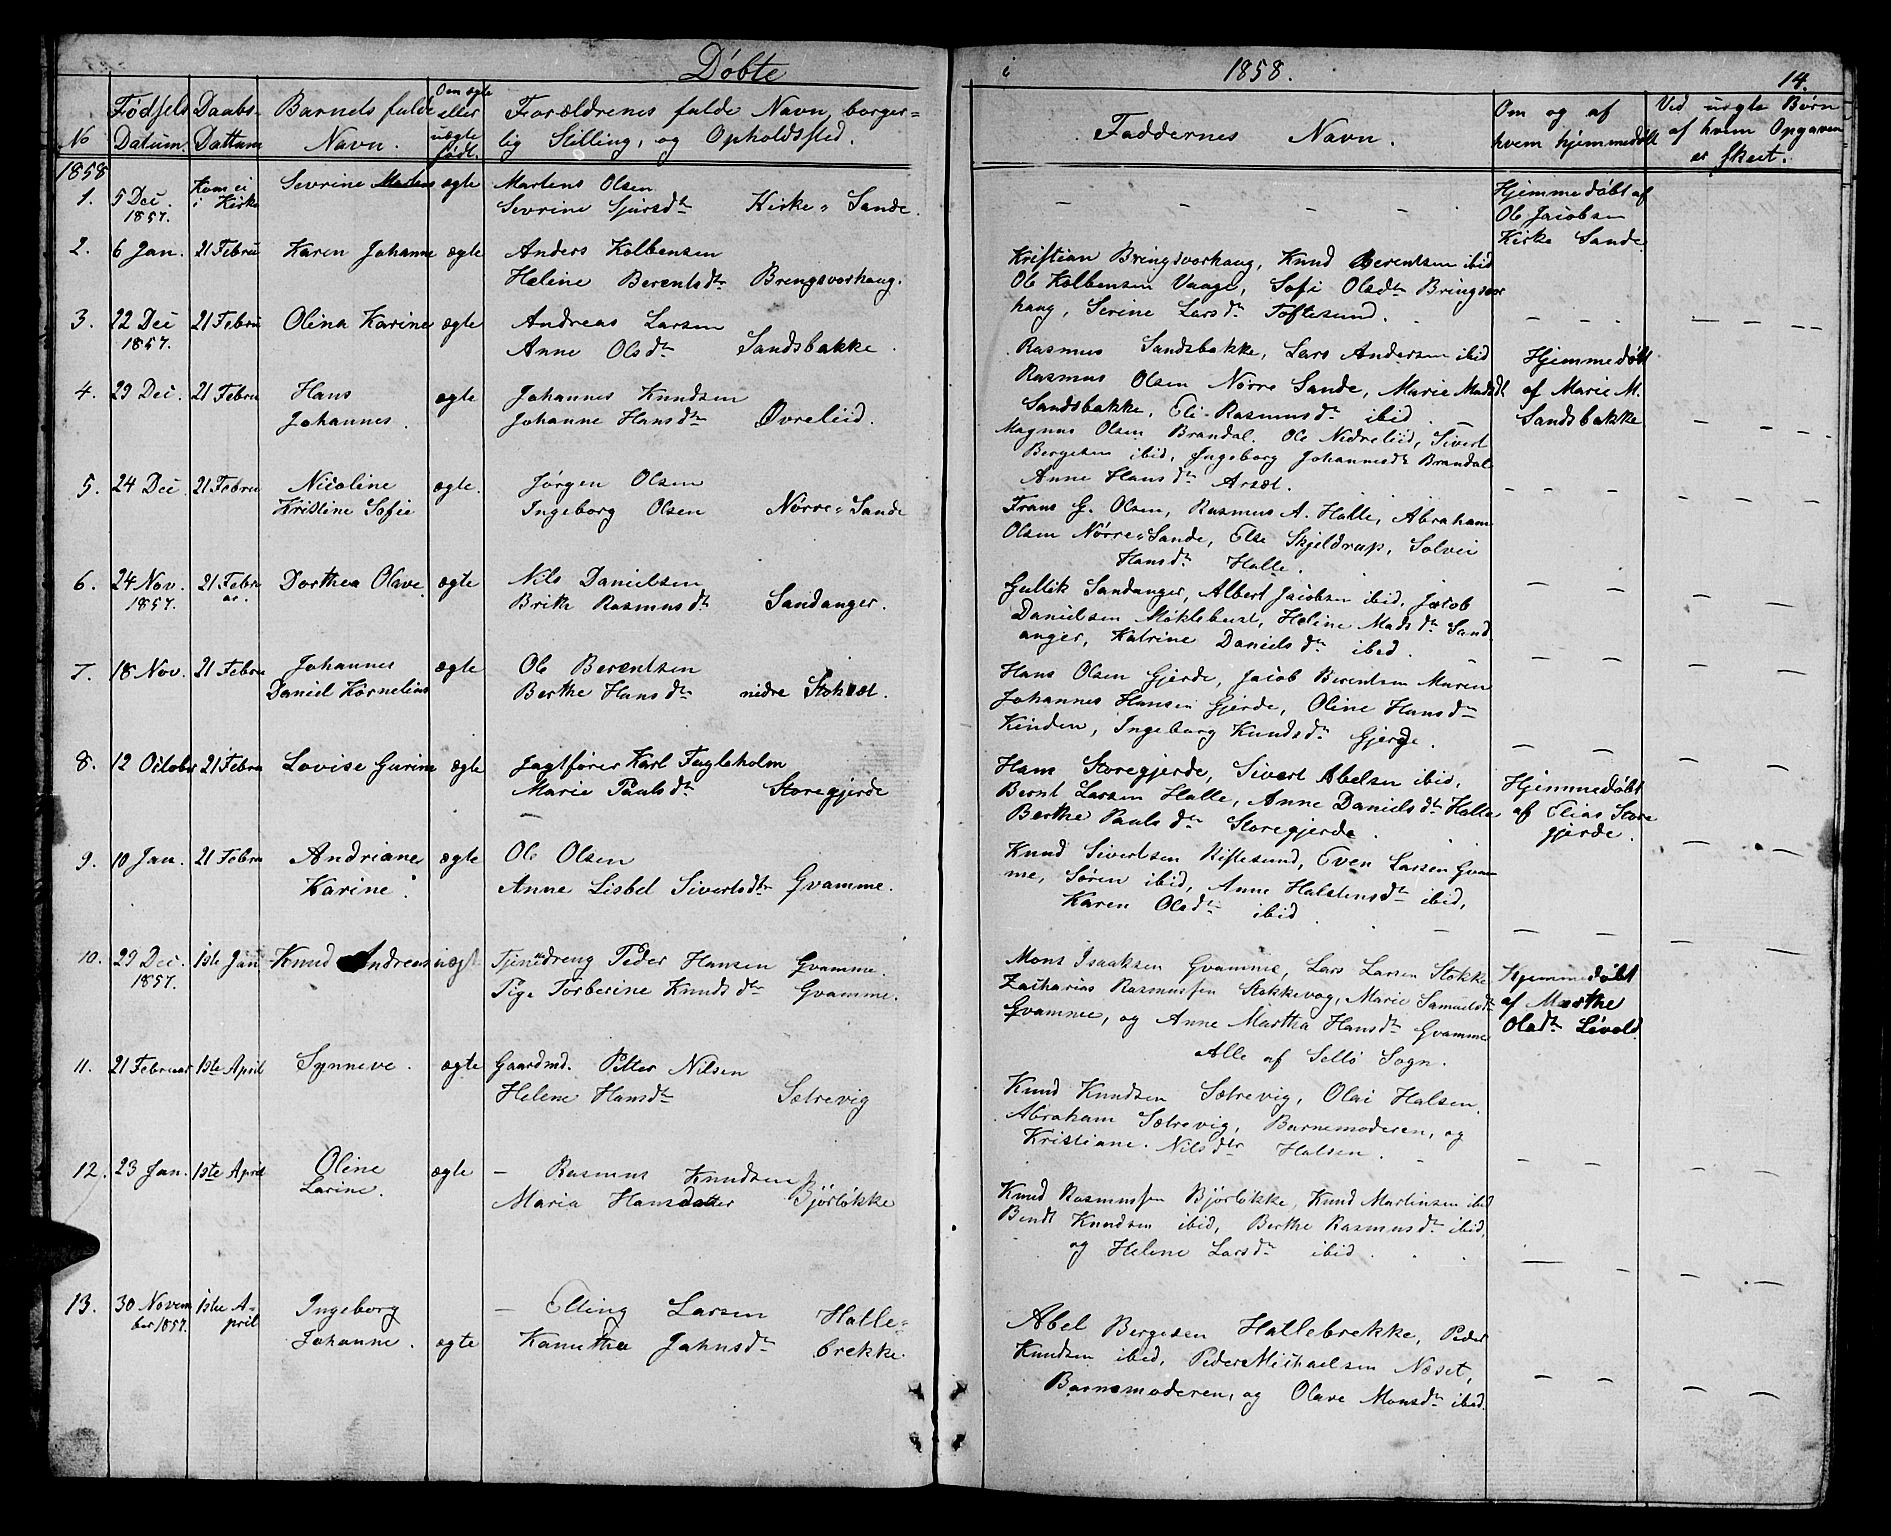 Døbte
i
1858.
14.
No
Fødsels Datum
Daabs- Dattum
Barnets fulde Navn.
Om ægte eller uægte født.
Forældrenes fulde Navn, borger=
lig Stilling, og Opholdssted.
Faddernes Navn.
Om og af
hvem hjemmedøbt
Ved uægte Børn
af hvem Opgaven
er skeet.
1858
1. 5 Dec. 1857. Kom ei i Kirke Sevrine Martens ægte
Martens Olsen
Sevrine Sjursdtr Kirke=Sande.
Hjemmedøbt af
Ole Jacobsen
Kirke Sande
2. 6 Jan. 21 Febru Karen Johanne ægte
Anders Kolbensen
Heline Berentsdtr Bringsvorhaug.
Kristian Bringsvorhaug, Knud Berentsen ibid
Ole Kolbensen Vaage, Sofi Olsdtr Bringsvor
haug, Serine Larsdtr Toftesund.
3. 22 Dec 1857. 21 Febru Olina Karine ægte
Andreas Larsen
Anne Olsdtr Sandsbakke.
Rasmus Sandsbakke, Lars Andersen ibid
Rasmus Olsen Nørre Sande, Marie Madsdt
Sandsbakke, Eli Rasmusdtr ibid.
Hjemmedøbt
af Marie M.
Sandsbakke
4. 29 Dec. 21 Febru Hans Johannes. ægte
Johannes Knudsen
Johanne Hansdtr Øvreliid.
Magnus Olsen Brandal. Ole Nedreliid, Sivert
Bergesen ibid, Ingeborg Johannesdtr Brandal
Anne Hansdtr Arsæt.
5. 24 Dec 21 Febru Nicoline Kristine Sofie ægte.
Jørgen Olsen
Ingeborg Olsen Nørre=Sande
Frans G. Olsen, Rasmus A. Halle, Abraham
Olsen Nørre=Sande, Else Skjeldrup, Solvei
Hansdtr Halle.
6. 24 Nov. 1857. 21 Febru ar. Dorthea Olave. ægte
Nils Danielsen
Brite Rasmusdtr Sandanger.
Gullik Sandanger, Albert Jacobsen ibid, Jacob
Danielsen Møklebust, Heline Madsdtr Sand
anger, Katrine Danielsdtr ibid.
7. 18 Nov. 21 Febru Johannes Daniel Kornelius ægte
Ole Berentsen
Berthe Hansdtr nedre Stokset.
Hans Olsen Gjerde, Jacob Berentsen Muren
Johannes Hansen Gjerde, Oline Hansdtr
Kinden, Ingeborg Knudsdtr Gjerde.
8. 12 October 21 Febru Lovise Gurine ægte
Jagtfører Karl Fugleholm
Marie Paulsdtr Storegjerde
Hans Storegjerde, Sivert Abelsen ibid,
Bernt Larsen Halle, Anne Danielsdtr Halle
Berthe Paulsdtr Storegjerde.
Hjemmedøbt
af Elias Store
gjerde.
9. 10 Jan. 21 Febru Andriane Karine. ægte
Ole Olsen
Anne Lisbet Sivertsdtr Gvamme.
Knud Sivertsen Riftesund, Even Larsen Gvam
me, Søren ibid, Anne Halstensdtr ibid,
Karen Olsdtr ibid.
10. 29 Dec. 1857. 1ste Jan Knud Andreas uægt
Tjenedreng Peder Hansen Gvamme.
Pige Torberine Knudsdtr Gvamme.
Mons Isaaksen Gvamme, Lars Larsen Stokke
Zacharias Rasmussen Stokkevog, Marie Samuelsdtr
Gvamme, og Anne Martha Hansdtr Gvamme
Alle af Sellø Sogn.
Hjemmedøbt
af Marthe
Olsdtr Løvold
11. 21 Februar 1ste April Synneve. ægte
Gaardmd. Petter Nilsen
Helene Hansdtr Sætrevig
Knud Knudsen Sætrevig, Olai Halsen.
Abraham Sætrevig, Barnemoderen, og
Kristiane Nilsdtr Halsen.
12. 23 Jan. 1ste April Oline Larine. ægte
— Rasmus Knudsen
Maria Hansdatter Bjørløkke
Knud Rasmussen Bjørløkke, Knud Martinsen ibid
Bendt Knudsen ibid, Berthe Rasmusdtr ibid,
og Helene Larsdtr ibid.
13. 30 Novem ber 1857. 1ste A= pril Ingeborg Johanne. ægte
— Elling Larsen Halle=
Kanutha Jahnsdtr brekke.
Abel Bergesen Hallebrekke, Peder
Knudsen ibid, Peder Michaelsen Næset,
Barnemoderen, og Olave Monsdtr ibid.